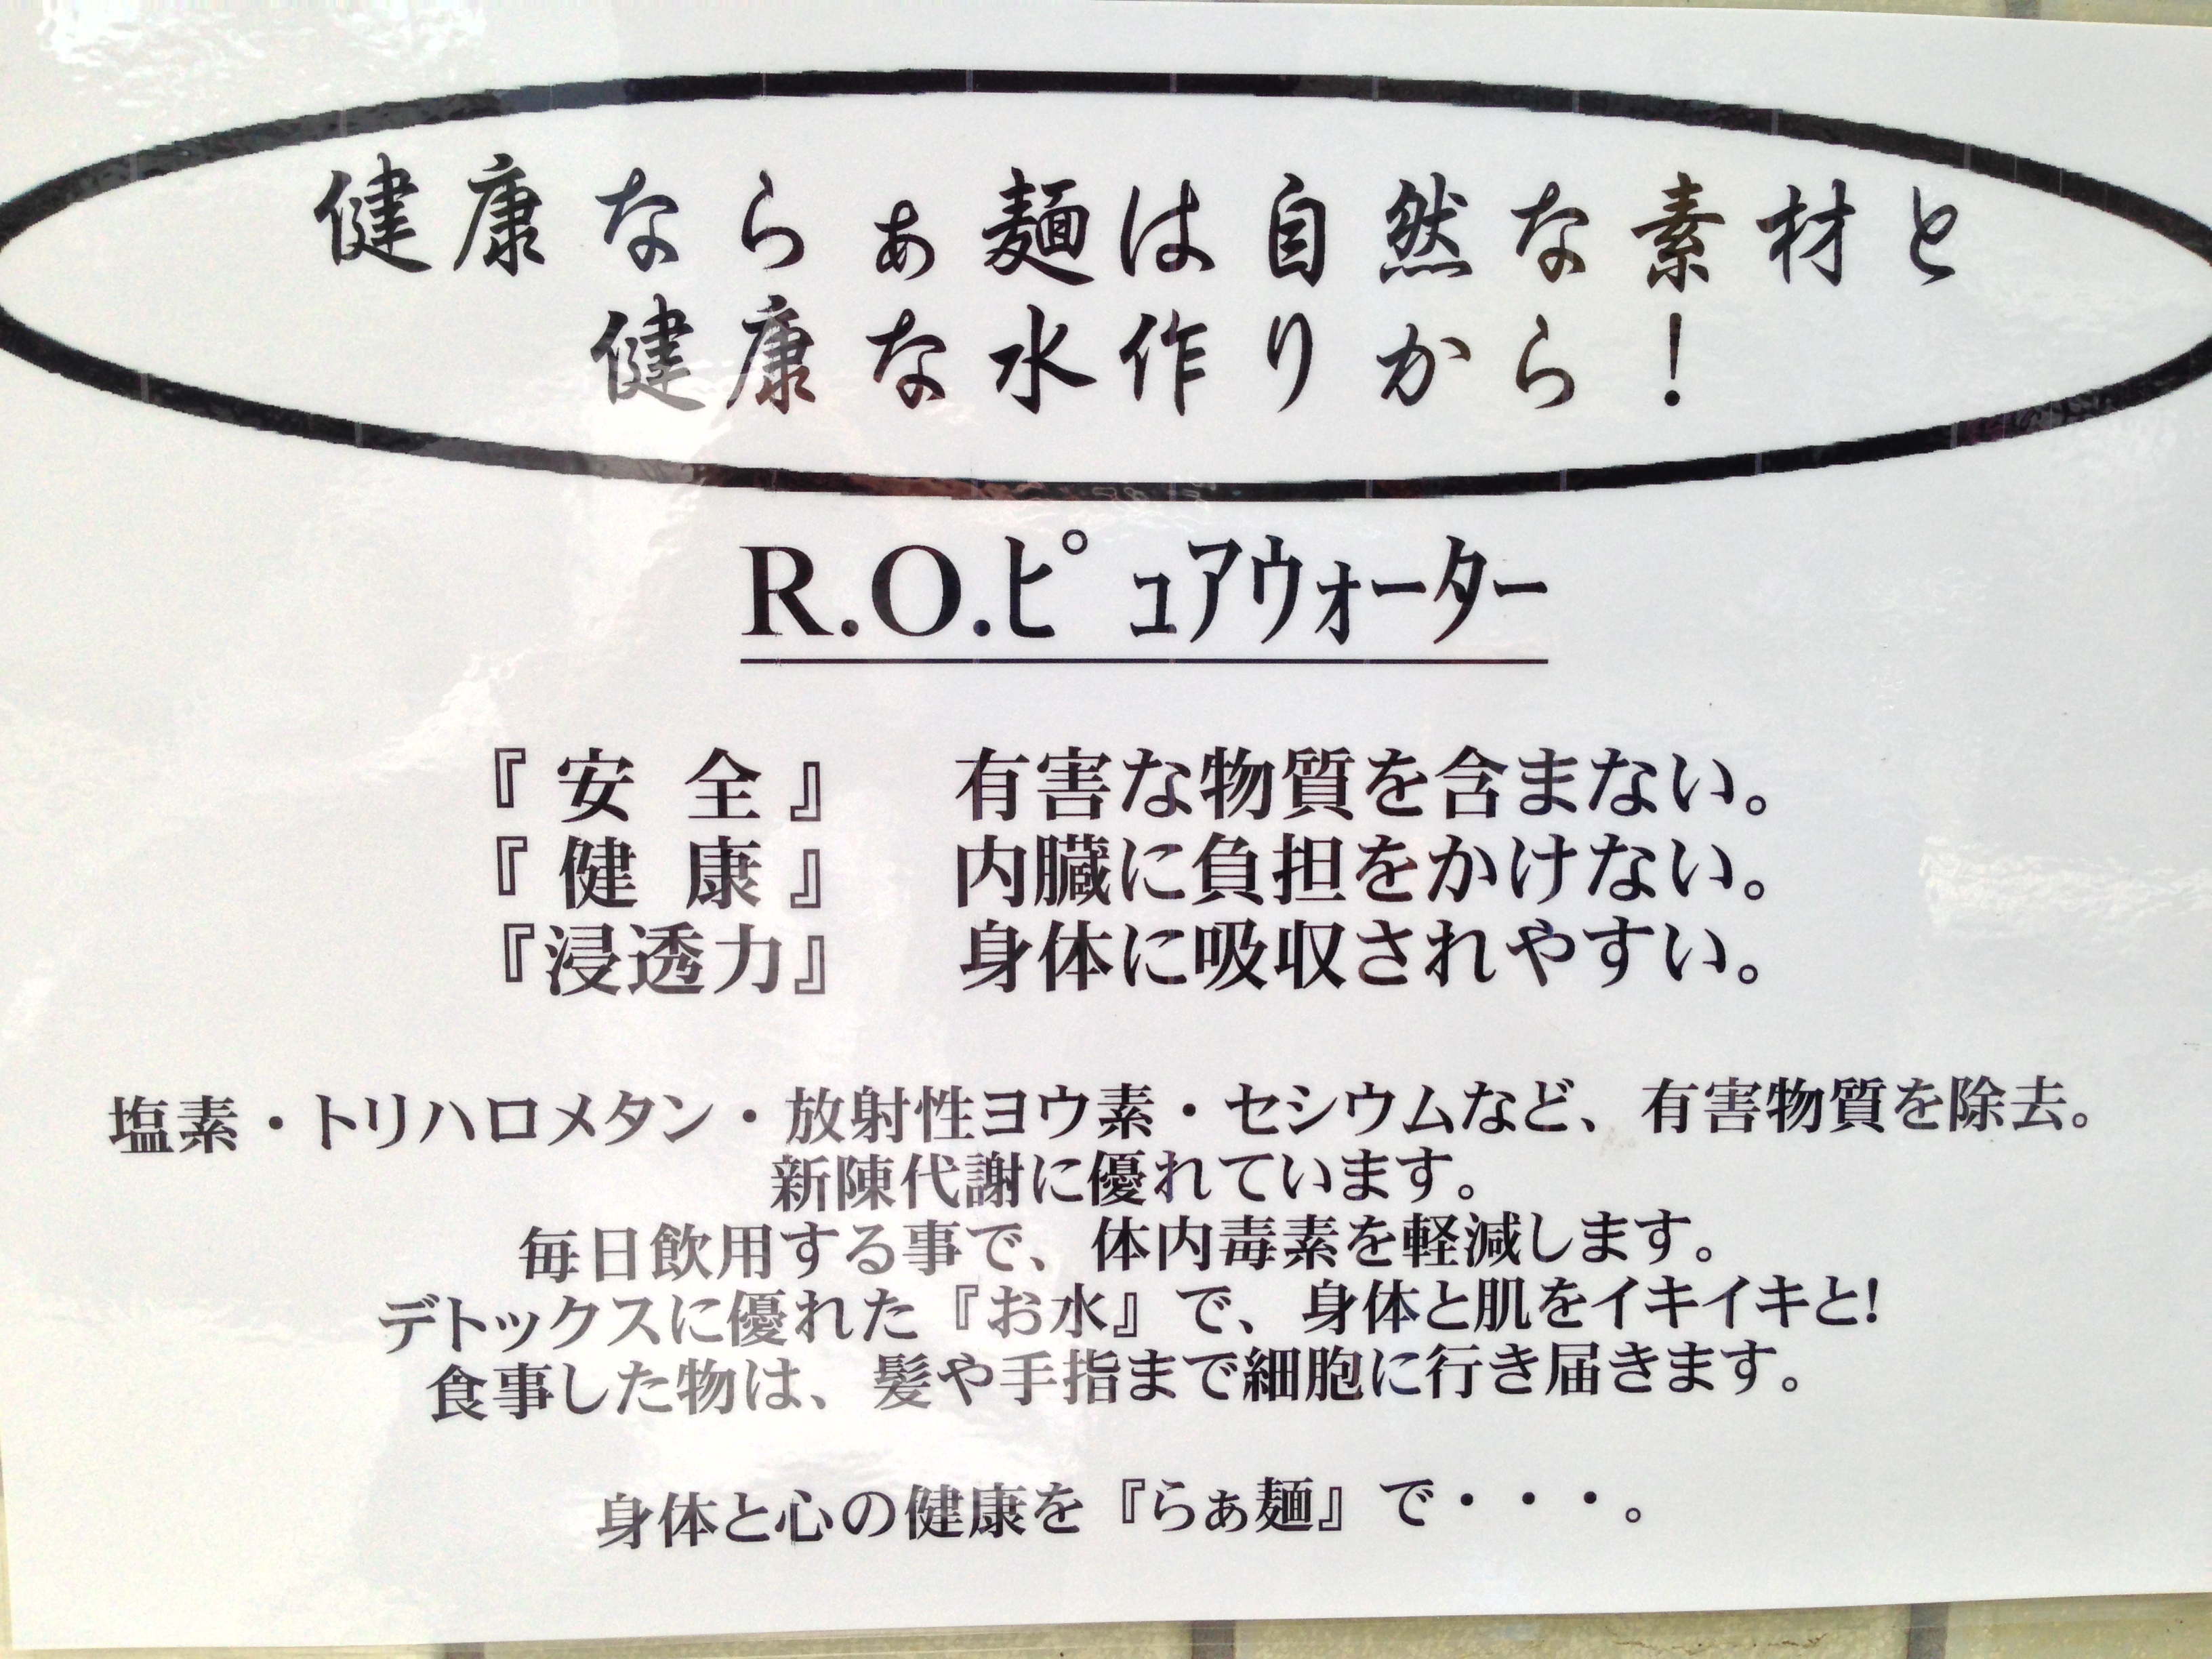 健康ならぁ麺は自然な素材と
健康な水作りから！
R.O.ﾋﾟｭｱｳｫｰﾀｰ
『安全』 有害な物質を含まない。
『健康』 内臓に負担をかけない。
『浸透力』 身体に吸収されやすい。
塩素・トリハロメタン・放射性ヨウ素・セシウムなど、有害物質を除去。
新陳代謝に優れています。
毎日飲用する事で、体内毒素を軽減します。
デトックスに優れた『お水』で、身体と肌をイキイキと!
食事した物は、髪や手指まで細胞に行き届きます。
身体と心の健康を『らぁ麺』で・・・。